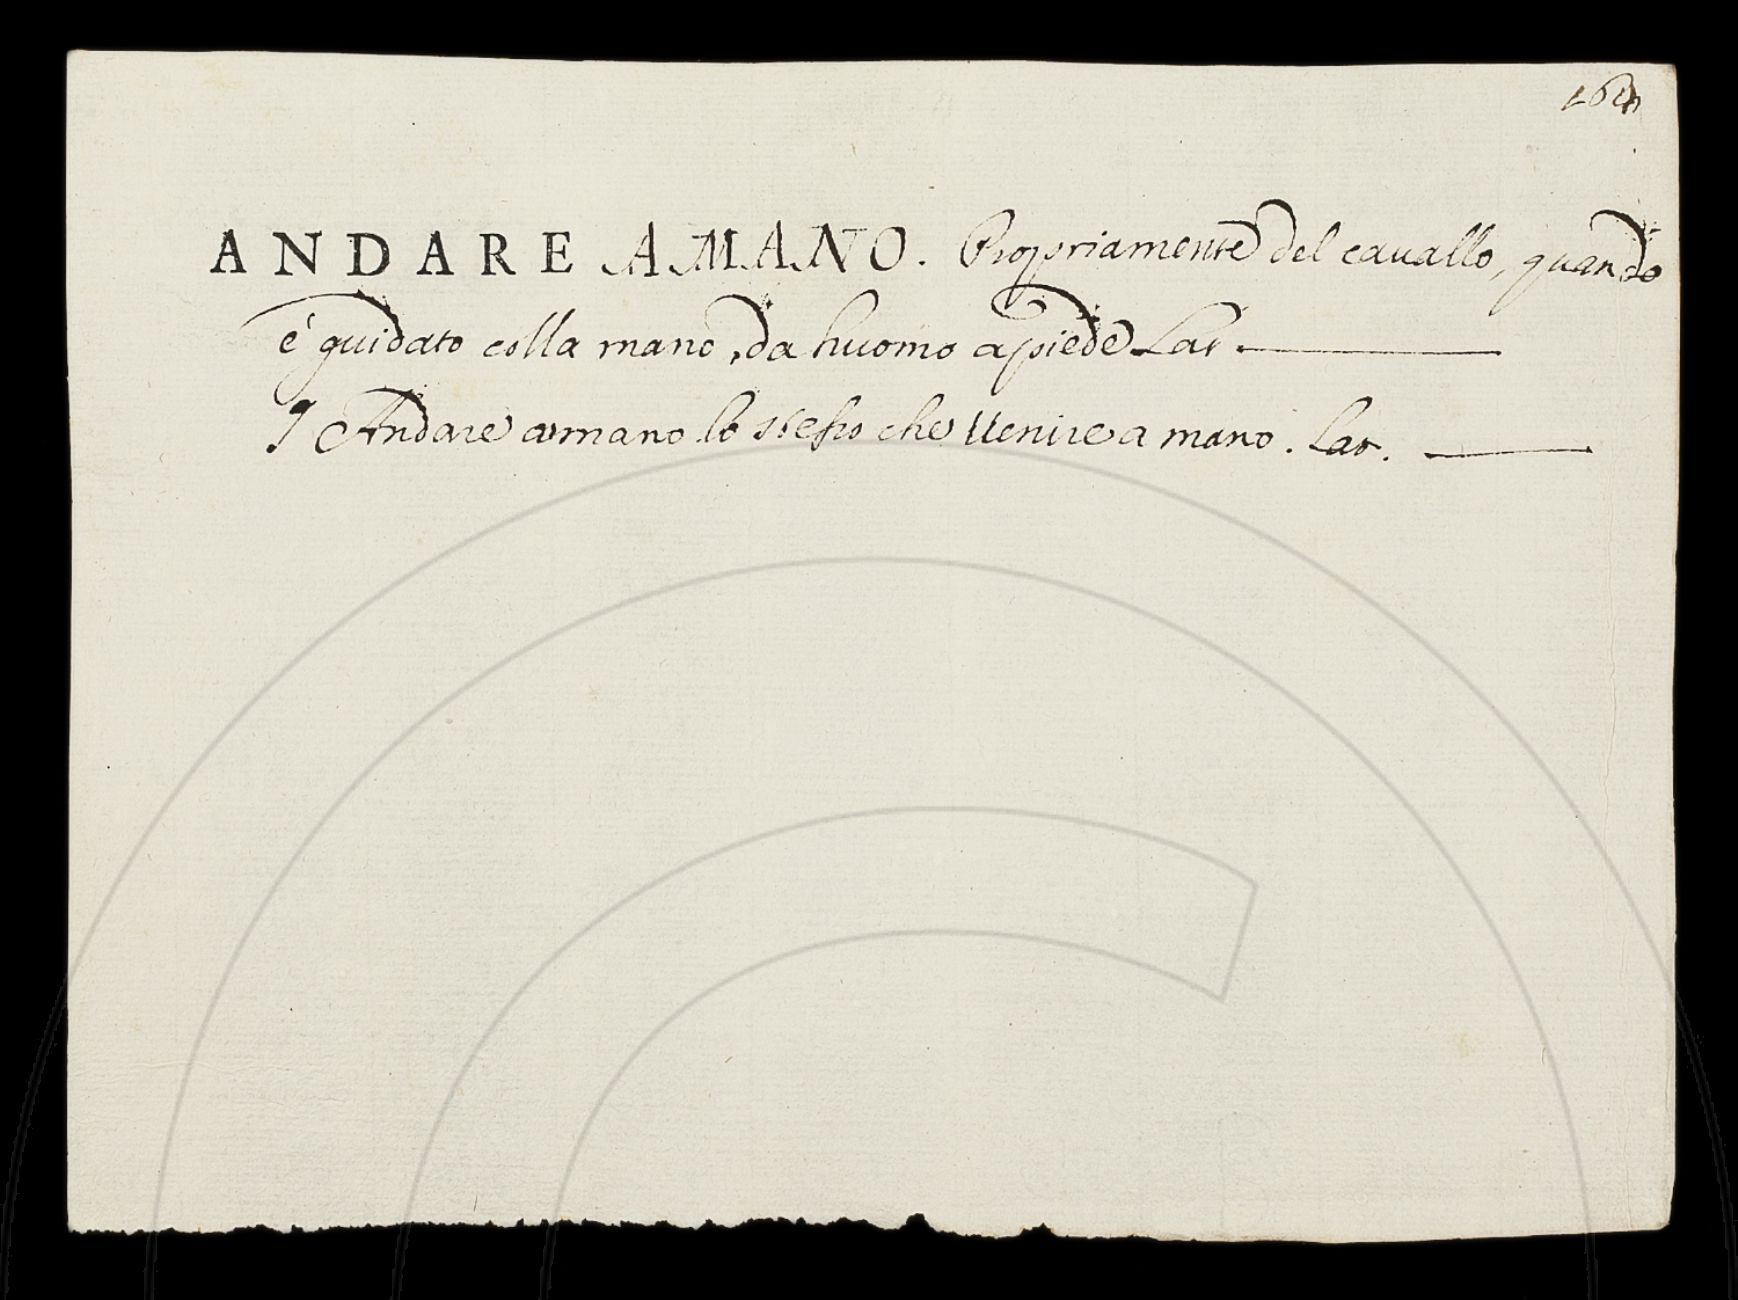 ANDARE AMANO. Propriamente del cauallo, quando
è guidato colla mano, da huomo apiede Lat
¶ Andare a mano lo stesso che Uenire a mano. Lat.